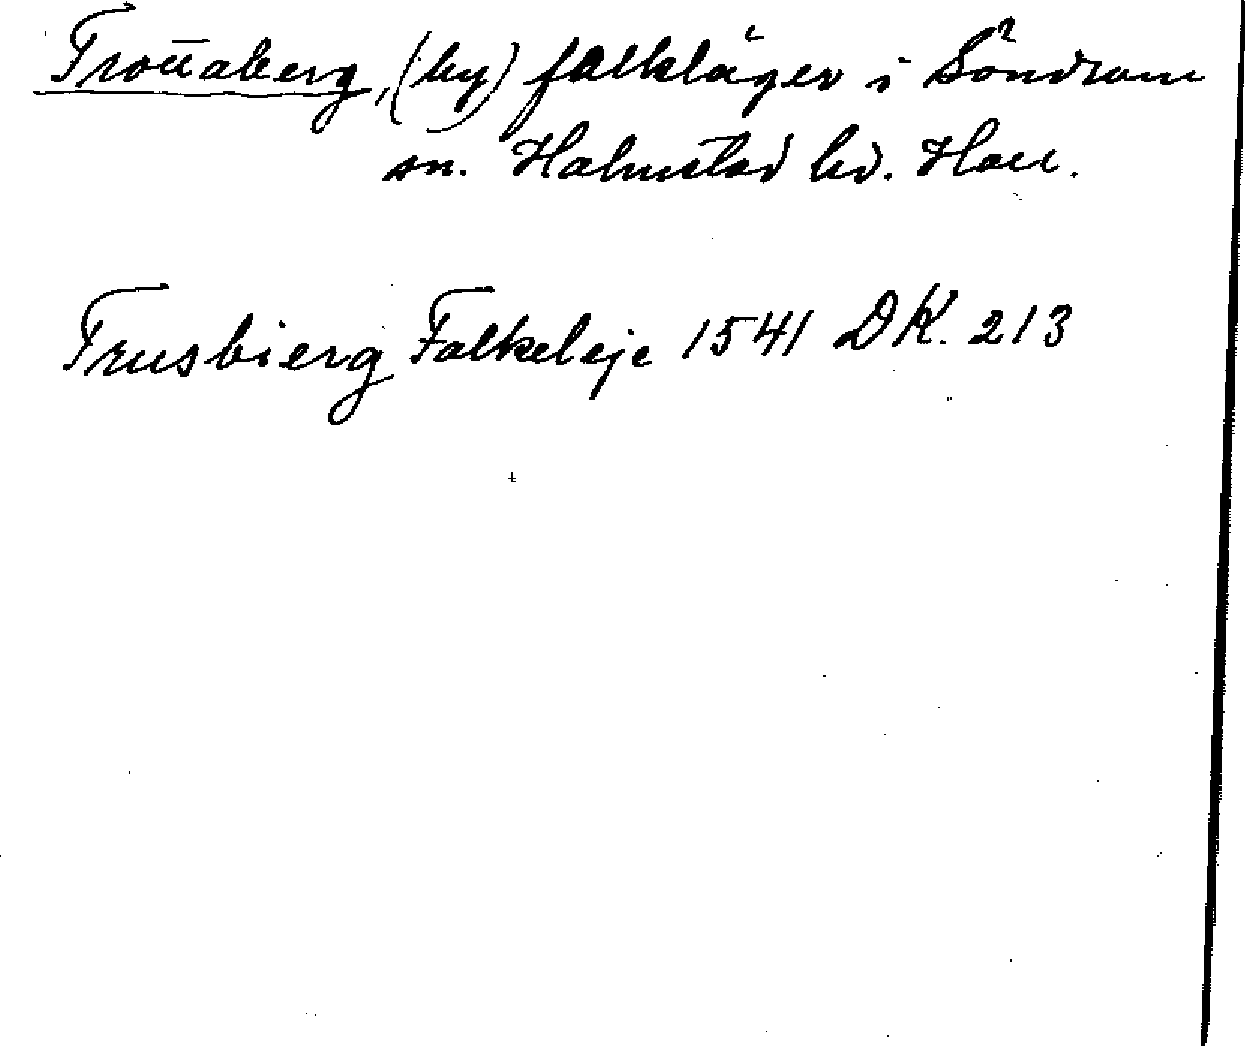 Tronaberg, (by) falkläger i Söndrum
sn. Halmstad hd. Hall.
Trusbierg Falkeleje 1541 DK. 213